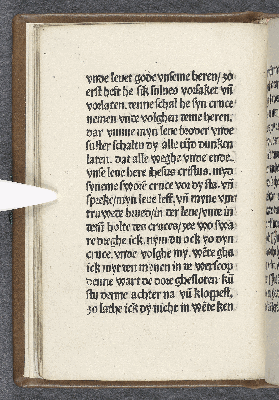 vnde leuet gode vnseme heren/ so
erst heft he sik sulues vorsaket vn̄
vorlaten. denne schal he syn cruce
nemen vnde volghen deme heren.
dar vmme myn leue broder vnde
suster schaltu dy alle tijd dunken
laten. dat alle weghe vnde ende
vnse leue here ihesus cristus. myd
syneme swore cruce vor dy sta. vn̄
spreke/ myn leue lest. vn̄ myne vnn
truwete brued/ in der leue/ vnde in
dem holte des cruces/ see wo swa
re dreghe ick. nym du ock vp dyn
cruce. vnde volghe my. wēte gha
ick myt den mynen in de werscop
denne wart de dore ghesloten kū
stu denne achter na vn̄ kloppest.
so lathe ick dy nicht in wēte ken